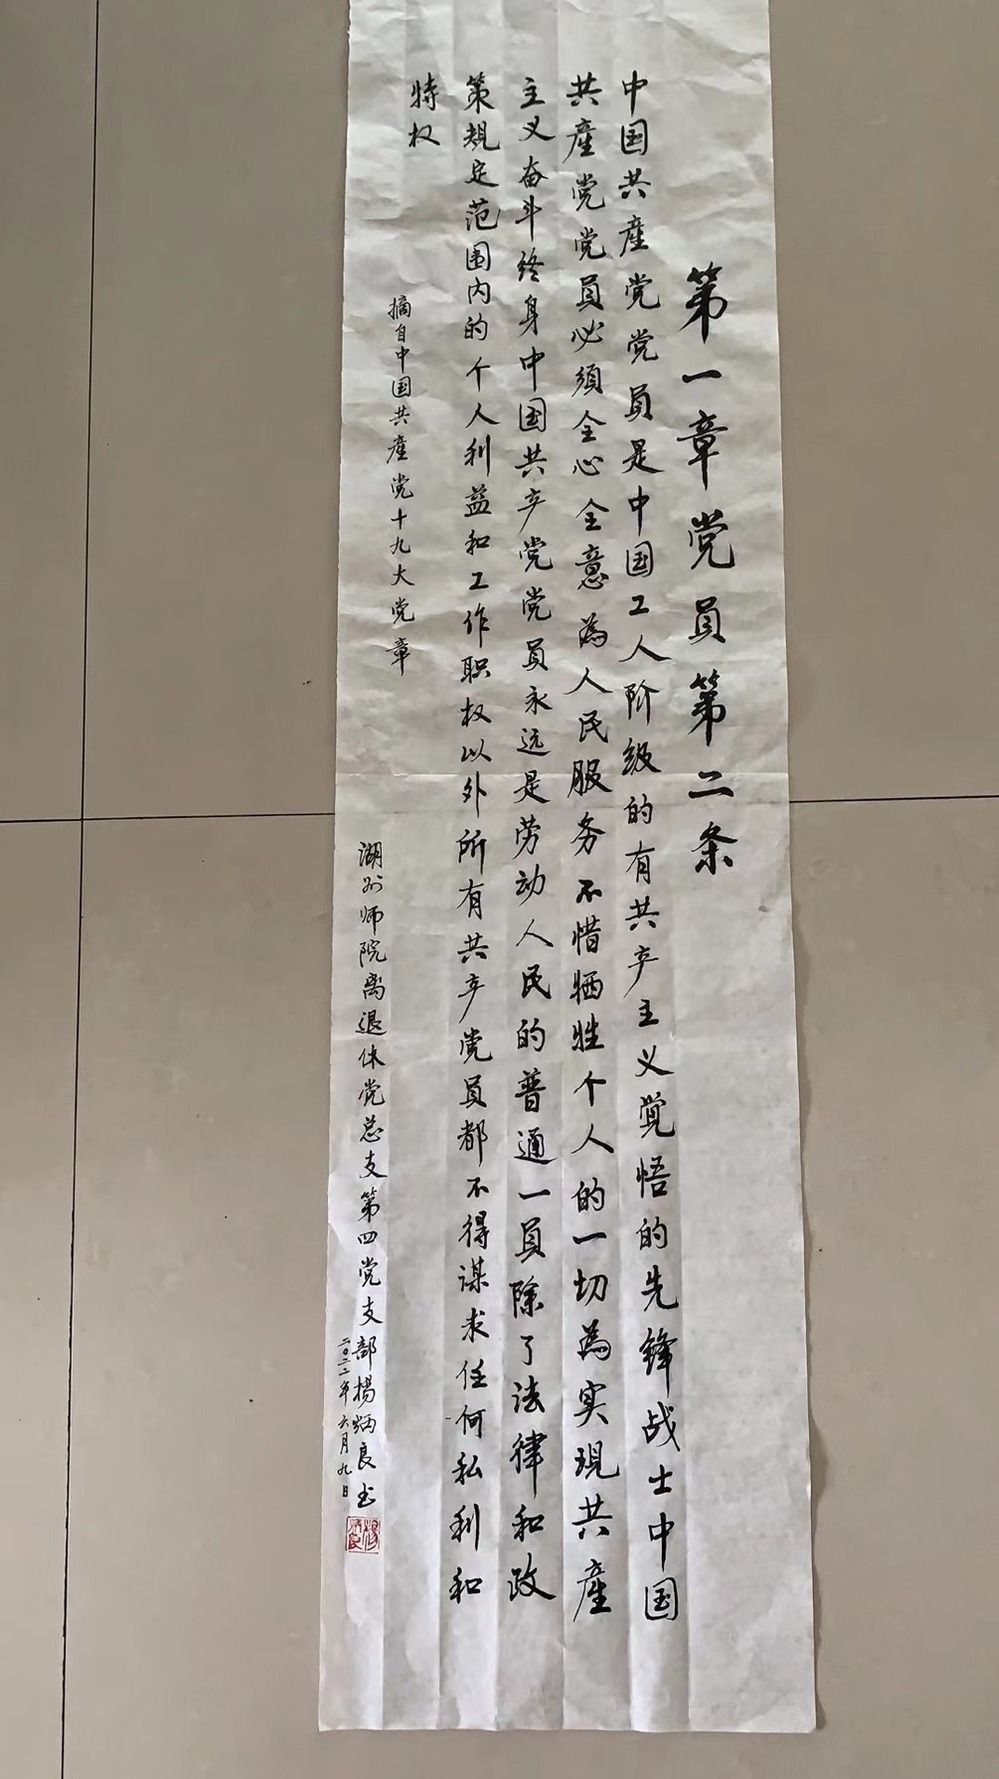 第一章党员第二条
中国共產党党员是中国工人阶级的有共产主义觉悟的先锋战士中国
共產党党员必须全心全意為人民服务不惜牺牲个人的一切為实现共產
主义奋斗终身中国共产党党员永远是劳动人民的普通一員除了法律和政
策规定范围内的个人利益和工作职权以外所有共产党员都不得谋求任何私利和
特权
摘自中国共產党十九大党章
湖州师院离退休党总支第四党支部楊炳良书
二〇二二年六月九日